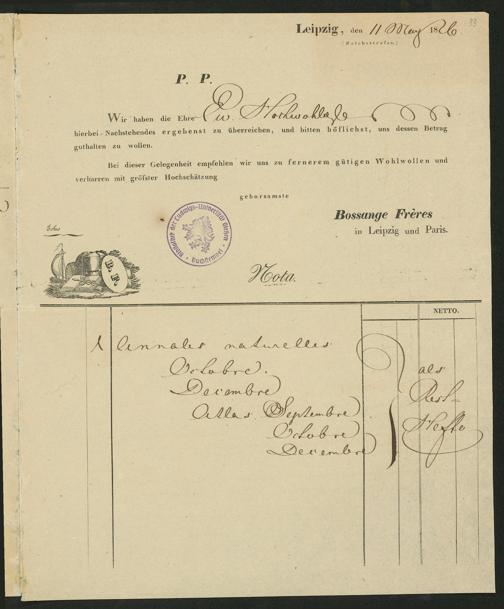 Leipzig, den 11 May 1826
33
(Reichsstrafse)
P. P.
Wir haben die Ehre Ew.
hierbei-Nachstehendes ergebenst zu überreichen, und bitten höflichst, uns dessen Betrag
guthalten zu wollen.
Bei dieser Gelegenheit empfehlen wir uns zu fernerem gütigen Wohlwollen und
verharren mit gröfster Hochschätzung
gehorsamste
Bossange Frères
in Leipzig und Paris.
Bibliothek der Ludwigs-Universität Giefsen
B. F.
Nota.
NETTO.
1 Annales naturelles
Octobre.
Decembre
Atlas Septembre
Octobre
Decembre
als
Rest-
Hefte